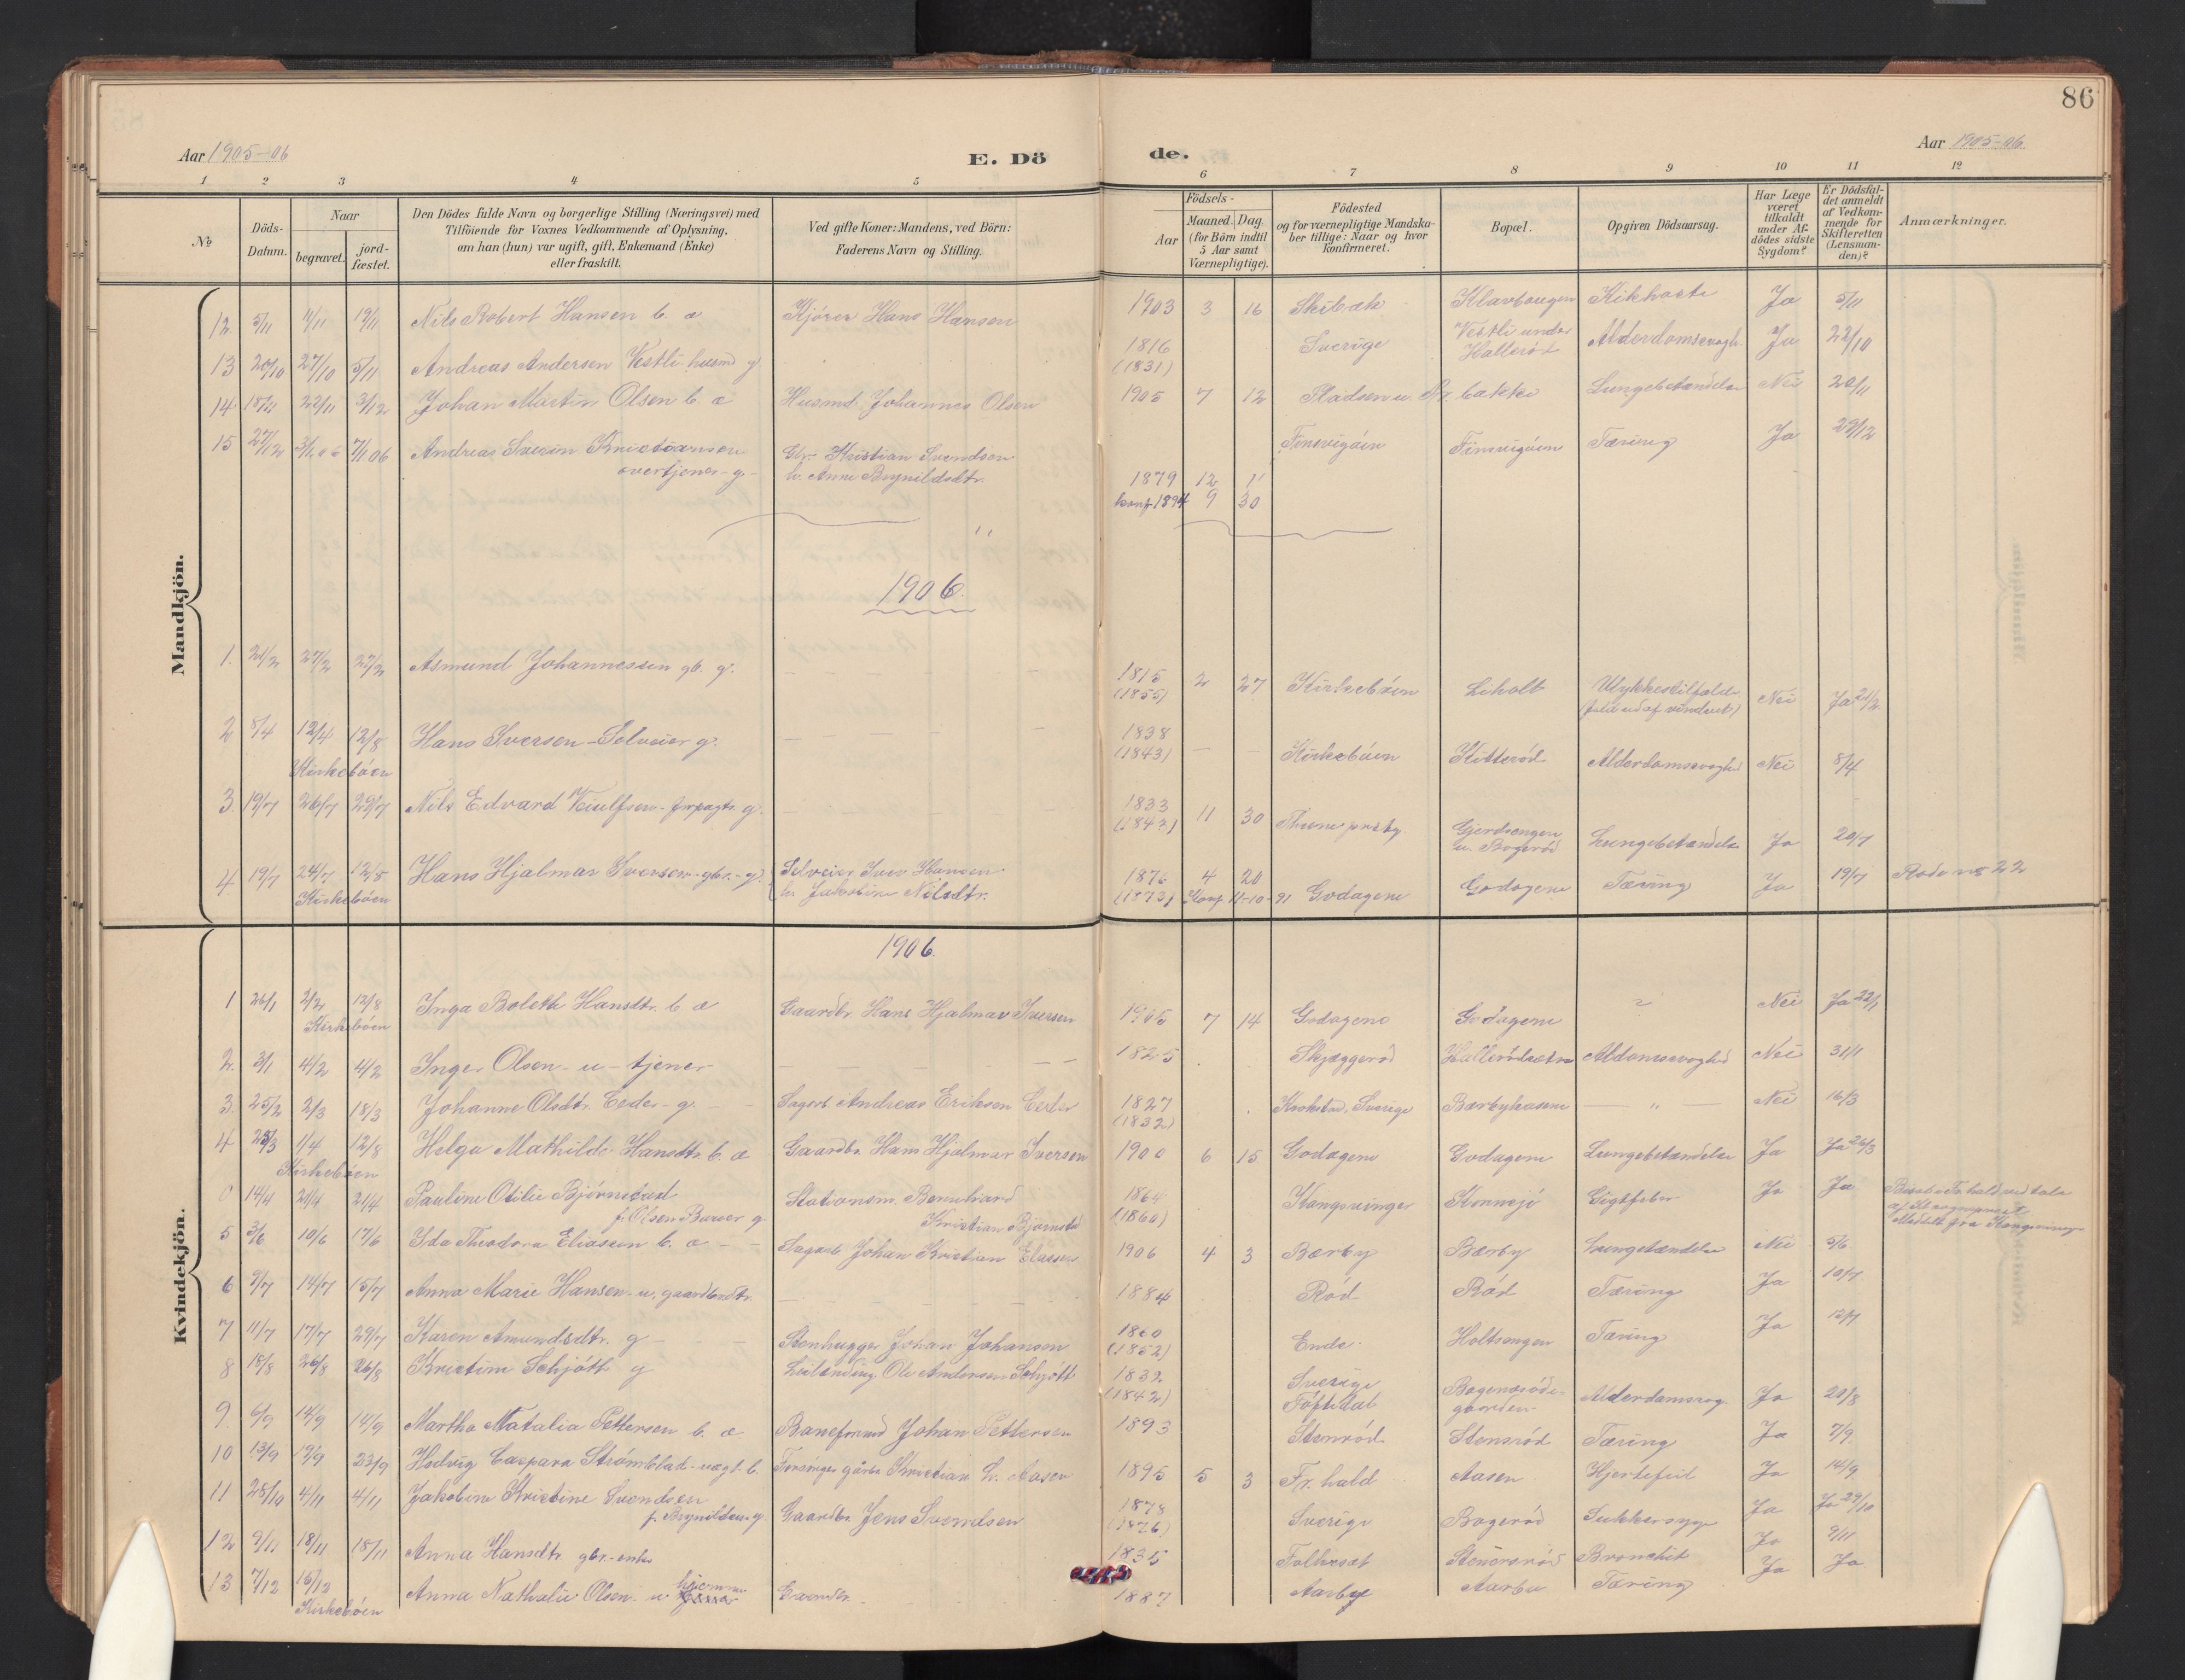 86
Aar 1905-06
E. Dö
de.
Aar 1905-06.
1 2 3 4 5 6 7 8 9 10 11 12
No
Döds-
Datum.
Naar
begravet.
jord-
fæstet.
Den Dödes fulde Navn og borgerlige Stilling (Næringsvei) med
Tilföiende for Voxnes Vedkommende af Oplysning,
om han (hun) var ugift, gift, Enkemand (Enke)
eller fraskilt.
Ved gifte Koner: Mandens, ved Börn:
Faderens Navn og Stilling.
Födsels-
Aar
Maaned. Dag.
(for Börn indtil
5 Aar samt
Værnepligtige).
Födested
og for værnepligtige Mandska-
ber tillige: Naar og hvor
konfirmeret.
Bopæl.
Opgiven Dödsaarsag.
Har Læge
været
tilkaldt
under Af-
dödes sidste
Sygdom?
Er Dödsfal-
det anmeldt
af Vedkom-
mende for
Skifteretten
(Lensman-
den)?
Anmærkninger.
Mandkjön.
12 5/11 11/11 19/11 Nils Robert Hansen b. æ Kjörer Hans Hansen 1903 3 16 Skibæk Klavhaugen Kikhoste Ja 5/11
13 20/10 27/10 5/11 Andreas Andersen Vestli husmd g 1816 (1831) Sverige Vestli under Hallerød Alderdomssvagh. Ja 22/10
14 15/11 22/11 3/12 Johan Martin Olsen b. æ Husmd. Johannes Olsen 1905 7 12 Pladsen u. bakke Lungebetændelse Nei 20/11
15 27/12 3/1 06 7/1 06 Andreas Severin Kristiansen
overtjener - g - Gbr. Kristian Svendsen
h. Anne Brynildsdtr. 1879 12 1 Finsvigåen Finsvigåen Tæring Ja 29/12
konf 1894 9 30
1906.
1. 21/2 27/2 27/2 Asmund Johannessen gb. g. 1815 (1855) 2 27 Kirkebøen Liholt Ulykkestilfælde
(faldt ud af vinduet) Nei Ja 21/2
2 8/4 12/4 12/8 Hans Iversen - Selveier g. 1838 (1843) Kirkebøen Kitterød Alderdomssvaghed Nei 8/4
Kirkebøen
3. 19/7 26/7 29/7 Nils Edvard Veiulfsen - forpagtr. g. 1833 (1843) 11 30 Thune prstg Gjerdsengen
u. Bogerød Lungebetændelse Ja 20/7
4. 19/7 24/7 12/8 Hans Hjalmar Iversen - gbr. - g. Selveier Iver Hansen.
h. Jakobine Nilsdtr. 1876 (1873) 4 20 Konf 4-10-91 Godagene Godagene Tæring Ja 19/7 Rode no 22
Kirkebøen
Kvindekjön.
1906.
1 26/1 2/2 12/8 Inga Boleth Hansdtr. b æ Gaardbr. Hans Hjalmar Iversen 1905 7 14 Godagene Godagene Nei Ja 22/1
Kirkebøen
2. 31/1 4/2 4/2 Inger Olsen - u - tjener 1825 Skjæggerød Hallerødsætra Aldomssvaghed Nei 31/1
3. 25/2 2/3 18/3 Johanne Olsdtr. Ceder - g. Sagarb. Andreas Eriksen Ceder 1827 (1832) Krokstad, Sverige Bærbyhusene — " — Nei 16/3
4 25/3 1/4 12/8 Helga Mathilde Hansdtr. b. æ Gaardbr. Hans Hjalmar Iversen 1900 6 15 Godagene Godagene Lungebetændelse Ja Ja 26/3
Kirkebøen
0 14/4 21/4 21/4 Pauline Otilie Bjørnstad
f. Olsen g Stationsm. Bernhard
Kristian Bjørnstad 1864 (1860) Kongsvinger Kornsjø Gigtfeber Ja Ja
5 3/6 10/6 17/6 Ida Theodora Eliassen b. æ Sagarb. Johan Kristian Eliassen 1906 4 3 Bærby Bærby Lungetændelse Nei 5/6
6 9/7 14/7 15/7 Anna Marie Hansen - u. gaardbrdtr. 1884 Rød Rød Tæring Ja 10/7
7 11/7 17/7 29/7 Karen Amundsdtr. g Stenhugger Johan Johansen 1860 (1852) Ende. Holtsengen Tæring Ja 12/7
8 18/8 26/8 26/8 Kristine Schjøtt g Leilænding. Ole Andersen Schjøtt 1832 (1842) Sverige
Töftedal gaarden Alderdomssvag. Ja 20/8
9. 6/9 14/9 14/9 Martha Natalia Pettersen b. æ Baneformd Johan Pettersen 1893 Stenrød Stensrød Tæring Ja 7/9
10 13/9 19/9 23/9 Hedvig Caspara Strömblad - uægt. b. Kristian L. Aasen 1895 5 3 Fr. hald Aasen Hjertefeil Ja 14/9
11 28/10 4/11 4/11 Jakobine Kristine Svendsen
f. Brynildsen - g Gaardbr. Jens Svendsen 1878 (1876) Sverige Bogerød Sukkersyge Ja Ja 29/10
12 9/11 18/11 18/11 Anna Hansdtr. gbr. - enke 1835 Stenersrød Bronchit Ja 9/11
13 7/12 16/12 Anna Nathalie Olsen. u hjemme Gaardbr. 1887 Aarbye Aarbu Tæring Ja Ja
Kirkebøen